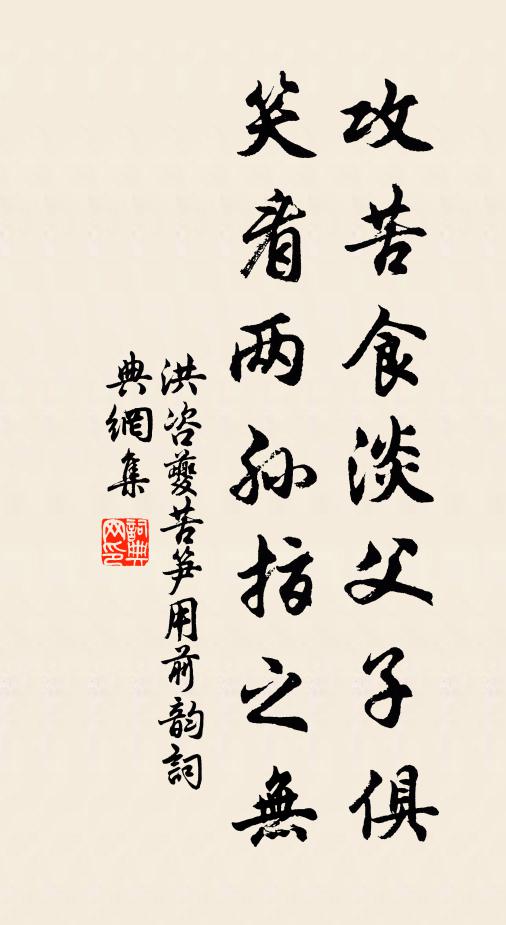 攻苦食淡父子俱
笑看两孙指之無
洪咨夔苦笋用前韵詞
典網集
詞典网印